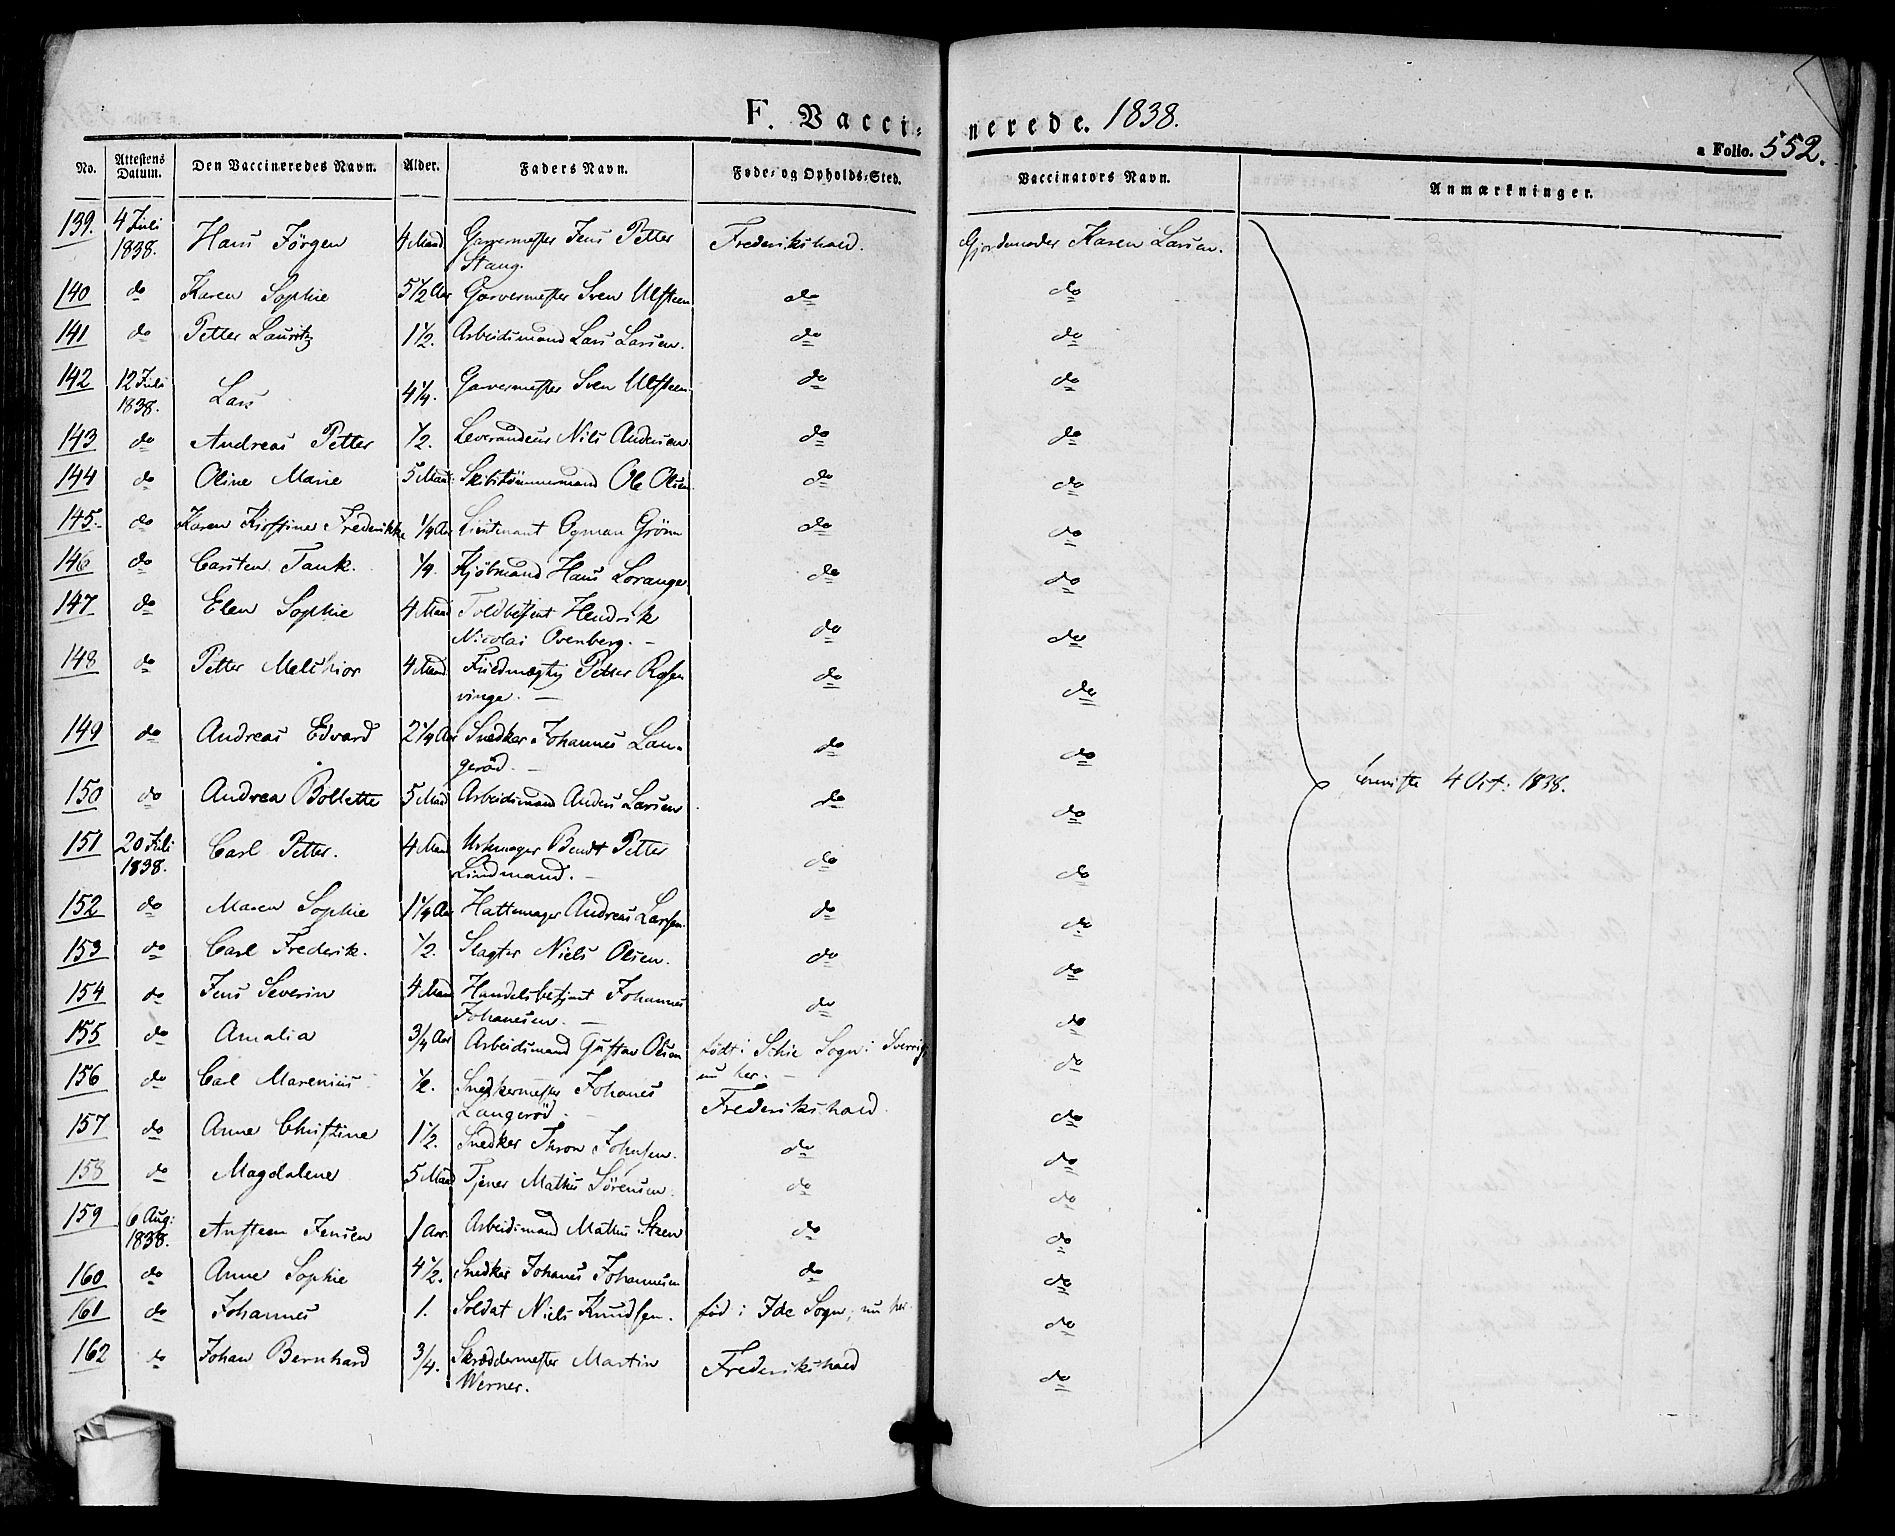 F. Vaccinerede. 1838.
a Folio. 552.
No. Attestens Datum. Den Vaccineredes Navn. Alder. Faders Navn. Føde- og Opholds-Sted. Vaccinators Navn. Anmærkninger.
139. 4 Juli 1838. Hans Jørgen 4 Maad Garvermester Jens Petter Stang. Frederikshald. Gjordemoder Karen Larsen.
140 do Karen Sophie 5 1/2 Aar Garvermester Sven Ulfsteen do do
141 do Petter Lauritz 1 1/2. Arbeidsmand Lars Larsen. do do
142 12 Juli 1838. Lars 4 1/4. Garvermester Sven Ulfsteen do do
143 do Andreas Petter 1/2. Leverandeur Nils Andersen do do
144 do Oline Marie 5 Maad: Skibstømmermand Ole Olsen. do do
145. do Karen Kirstine Frederikke 1/4 Aar Lieutenant Ogman Grønn do do
146 do Carsten Tank. 1/4. Kjøbmand Hans Lorange do do
147 do Elen Sophie 4 Maad Toldbetjent Hendrik Nicolai Ovenberg. – do do
148 do Petter Melchior 4 Maad Fuldmægtig Petter Rosenvinge. – do do
149 do Andreas Edvard 2 1/4 Aar Snedker Johannes Langerød. – do do
150 do Andrea Bollette 5 Maad Arbeidsmand Anders Larsen do do
1 4 Oct: 1838.
151 20 Juli 1838. Carl Petter. 4 Maad Urhmager Bendt Petter Lindmand. – do do
152 do Maren Sophie 1 1/4 Aar Hattemager Andreas Larsen. do do
153 do Carl Frederik. 1/2. Slagter Niels Olsen. do do
154 do Jens Severin 4 Maad Handelsbetjent Johannes Johanesen. – do do
155 do Amalia 3/4 Aar Arbeidsmand Gustav Olsen født i Schie Sogn i Sverrig, nu her. – do
156 do Carl Marenius 1/2. Snedkermester Johanes Langerød. – Frederikshald. do
157 do Anne Christine 1 1/2. Snedker Thron Johnsen. do do
158 do Magdalene 5 Maad Tjener Mathis Sørensen. do do
159 6 Aug: 1838. Ansteen Jensen 1 Aar. Arbeidsmand Mathis Steen do do
160 do Anne Sophie 4 1/2. Snedker Johanes Johannesen do do
161 do Johannes 1. Soldat Niels Knudsen. fød i Ide Sogn, nu her. do
162 do Johan Bernhard 3/4. Skræddermester Martin Werner. Frederikshald do